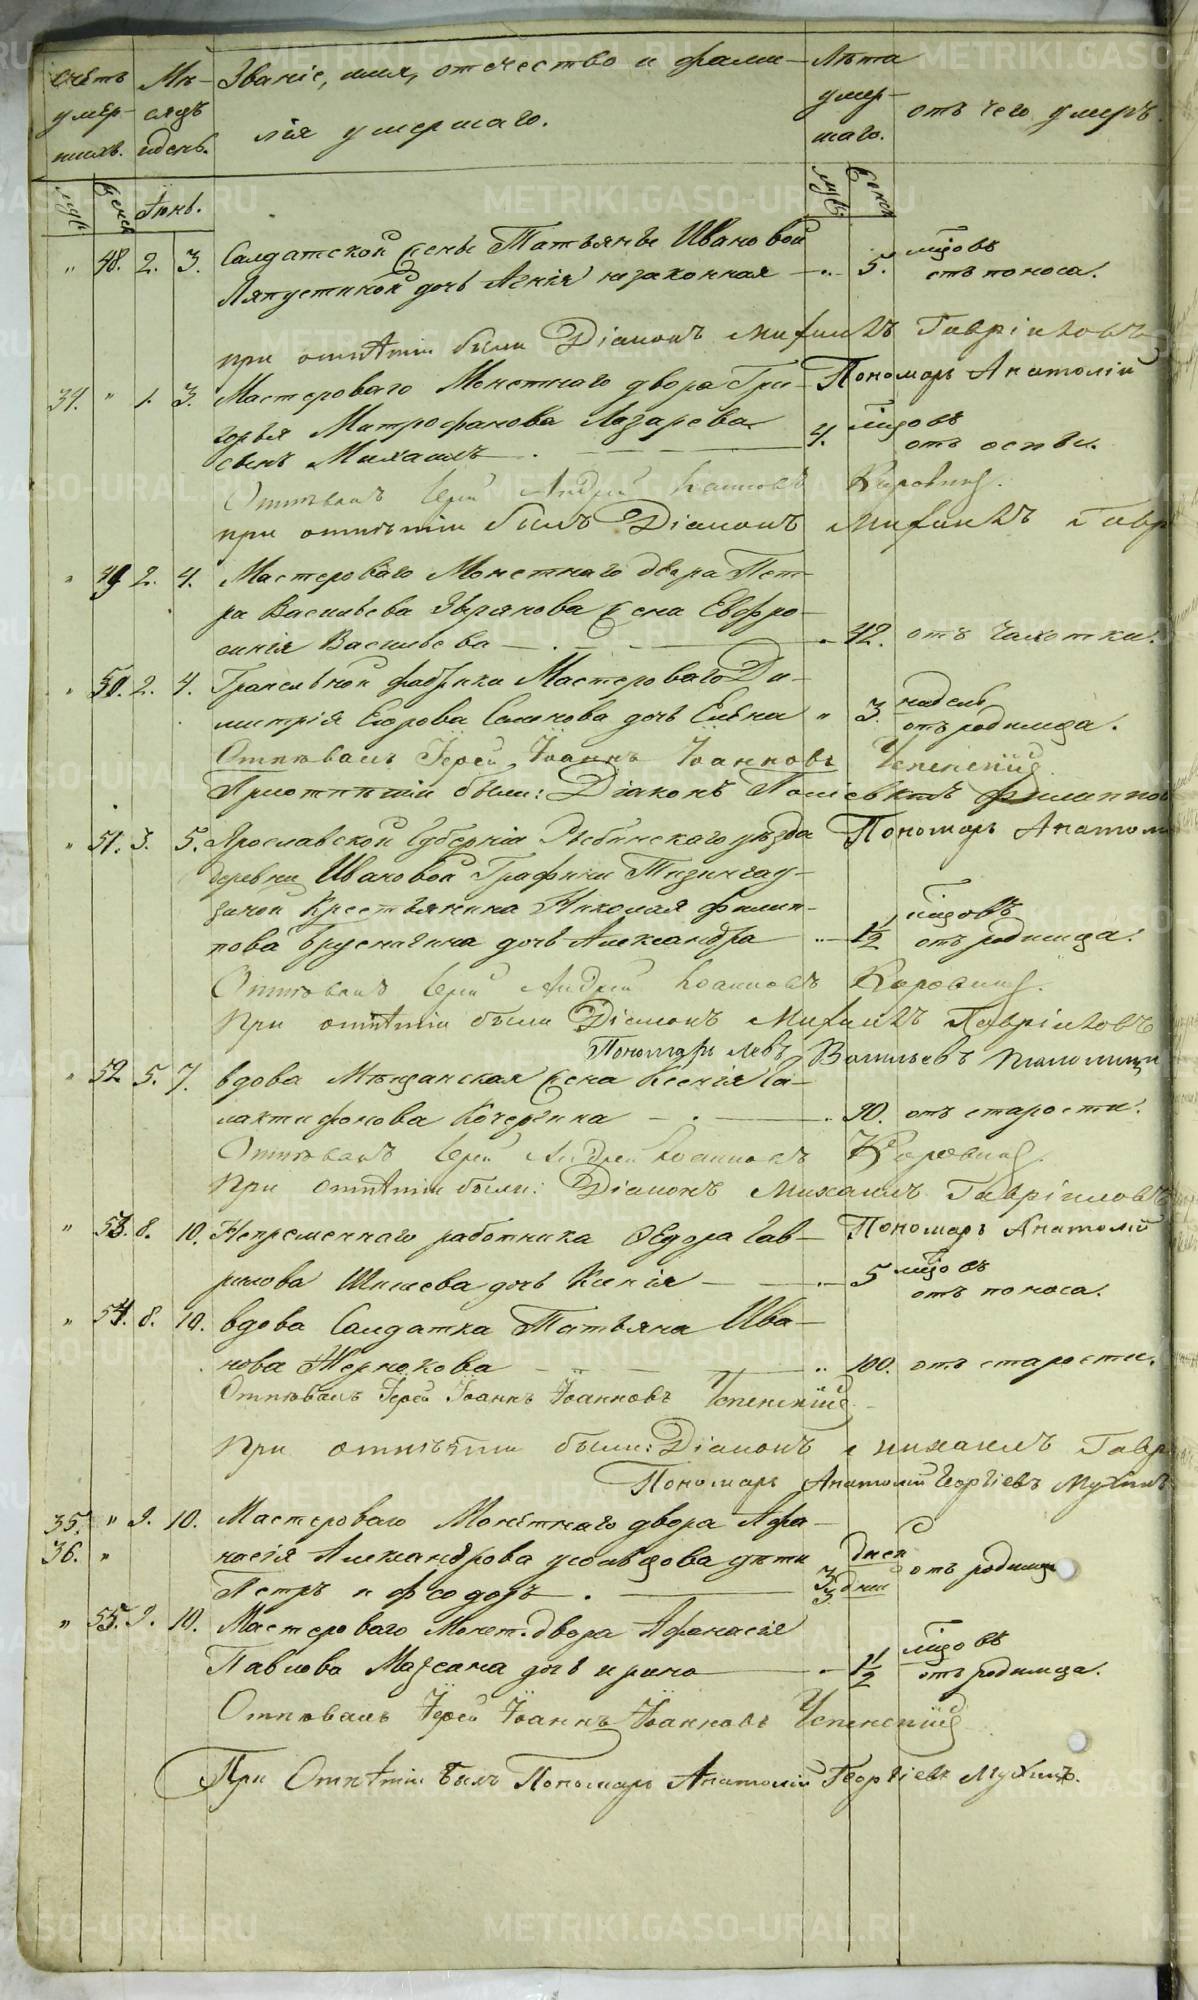 Счетъ умер-шихъ.
Мѣ-сяцъ и день.
Званіе, имя, отчество и фами-
лія умершаго.
Лѣта умер-шаго.
отъ чего умеръ.
Муж. Женск. Іюнь. Муж. Женск.
" 48. 2. 3. Салдатской жены Татьяны Ивановой " 5. мѣсцовъ
Ляпустиной дочь Агнія незаконная отъ поноса.
при отпѣтіи были Діаконъ Михаилъ Гавріиловъ
34. " 1. 3. Мастероваго Монетнаго двора Гри- Пономарь Анатолій
горья Митрофанова Лазарева 4. мѣсцовъ
сынъ Михаилъ отъ оспы.
Отпѣвалъ Іерей Андрей Іоанновъ Коровинъ.
при отпѣтіи былъ Діаконъ Михаилъ Гавр
" 49 2. 4. Мастероваго Монетнаго двора Пет-
ра Васильева Звѣрянова жена Евфро-
синія Васильева " 42. отъ чахотки.
" 50. 2. 4. Гранильной фабрики Мастероваго Ди-
митрія Егорова дочь Елена " 3. недель
отъ родимца.
Отпѣвалъ Іерей Іоаннъ Іоанновъ Успенскій
При отпѣтіи были: Діаконъ Филиппов
" 51. 3. 5. Ярославской Губерніи Рыбинскаго уѣзда Пономарь Анатоли
деревни Ивановой Графини
Крестьянина Николая Филип- мѣсцовъ
пова Брусницина дочь Александра " 1 1/2 отъ родимца.
Отпѣвалъ Іерей Андрей Іоанновъ Коровинъ.
При отпѣтіи были Діаконъ Михаилъ Гавріиловъ
Пономарь Левъ Васильевъ
" 52. 5. 7. вдова Мѣщанская жена Ксенія Га-
лактіонова " 90. отъ старости.
Отпѣвалъ Іерей Андрей Іоанновъ Коровинъ.
При отпѣтіи были: Діаконъ Михаилъ Гавріиловъ
" 53. 8. 10. Непременнаго работника Ѳедора Гав- Пономарь Анатолій
рилова дочь Ксенія " 5 мѣсцовъ
отъ поноса.
" 54. 8. 10. вдова Салдатка Татьяна Ива-
нова " 100. отъ старости.
Отпѣвалъ Іерей Іоаннъ Іоанновъ Успенскій
При отпѣтіи были: Діаконъ Михаилъ Гавр
Пономарь Анатолій Георгіевъ Мухинъ
35. " 9. 10. Мастероваго Монетнаго двора Афа-
36. " насія Александрова Усольцова дѣти 3 дней отъ родимца
Петръ и Феодоръ 3 дни
" 55. 9. 10. Мастероваго Монет. двора Афанасія
Павлова дочь Ирина " 1 1/2 мѣсцовъ
отъ родимца.
Отпѣвалъ Іерей Іоаннъ Іоанновъ Успенскій
При Отпѣтіи былъ Пономарь Анатолій Георгіевъ Мухинъ.
METRIKI.GASO-URAL.RU